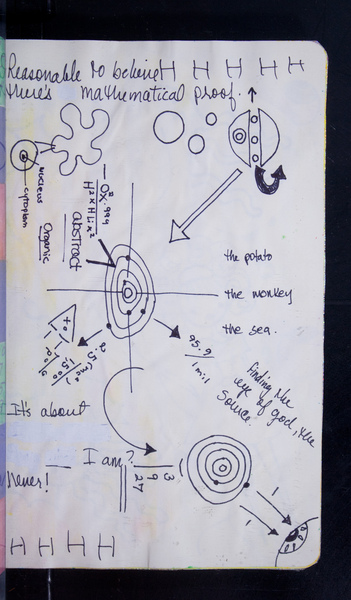 Reasonable to believe H H H H H
there's mathematical proof.
nucleus
cytoplam
Organic
abstract
the potato
the monkey
the sea.
95.9
1m:1
finding the
eye of god, the
source.
It's about
I am?
3
9
27
Never!
1
1
H H H H